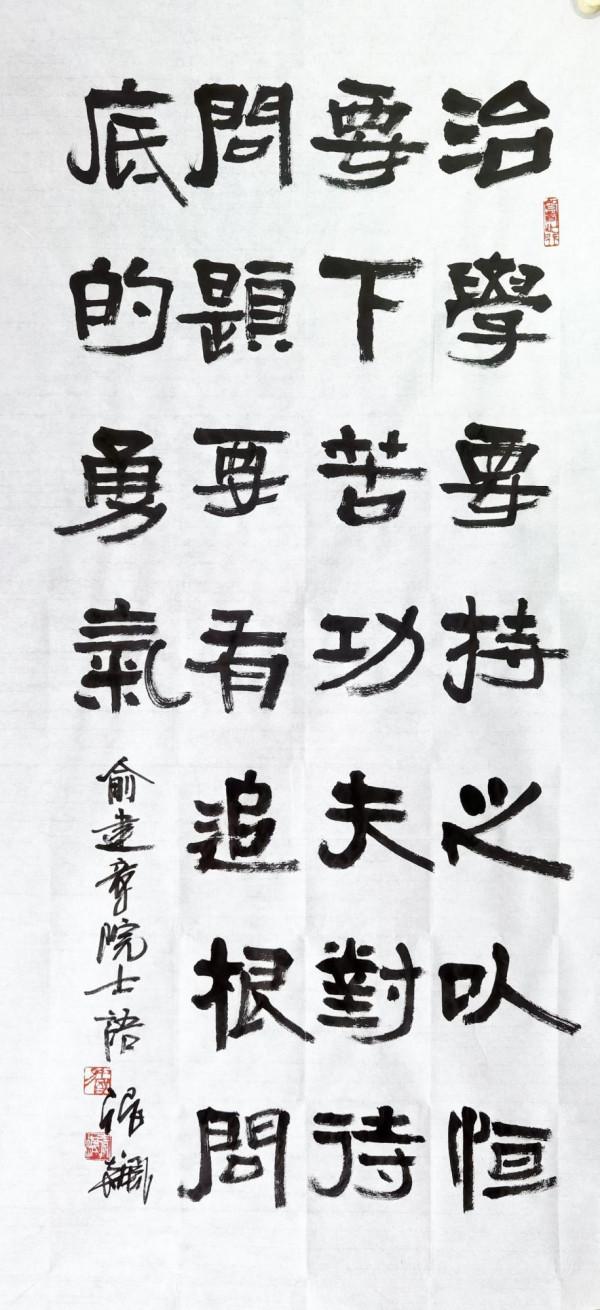 治學要持之以恒
要下苦功夫對待
問題要有追根問
底的勇氣
俞建章院士語